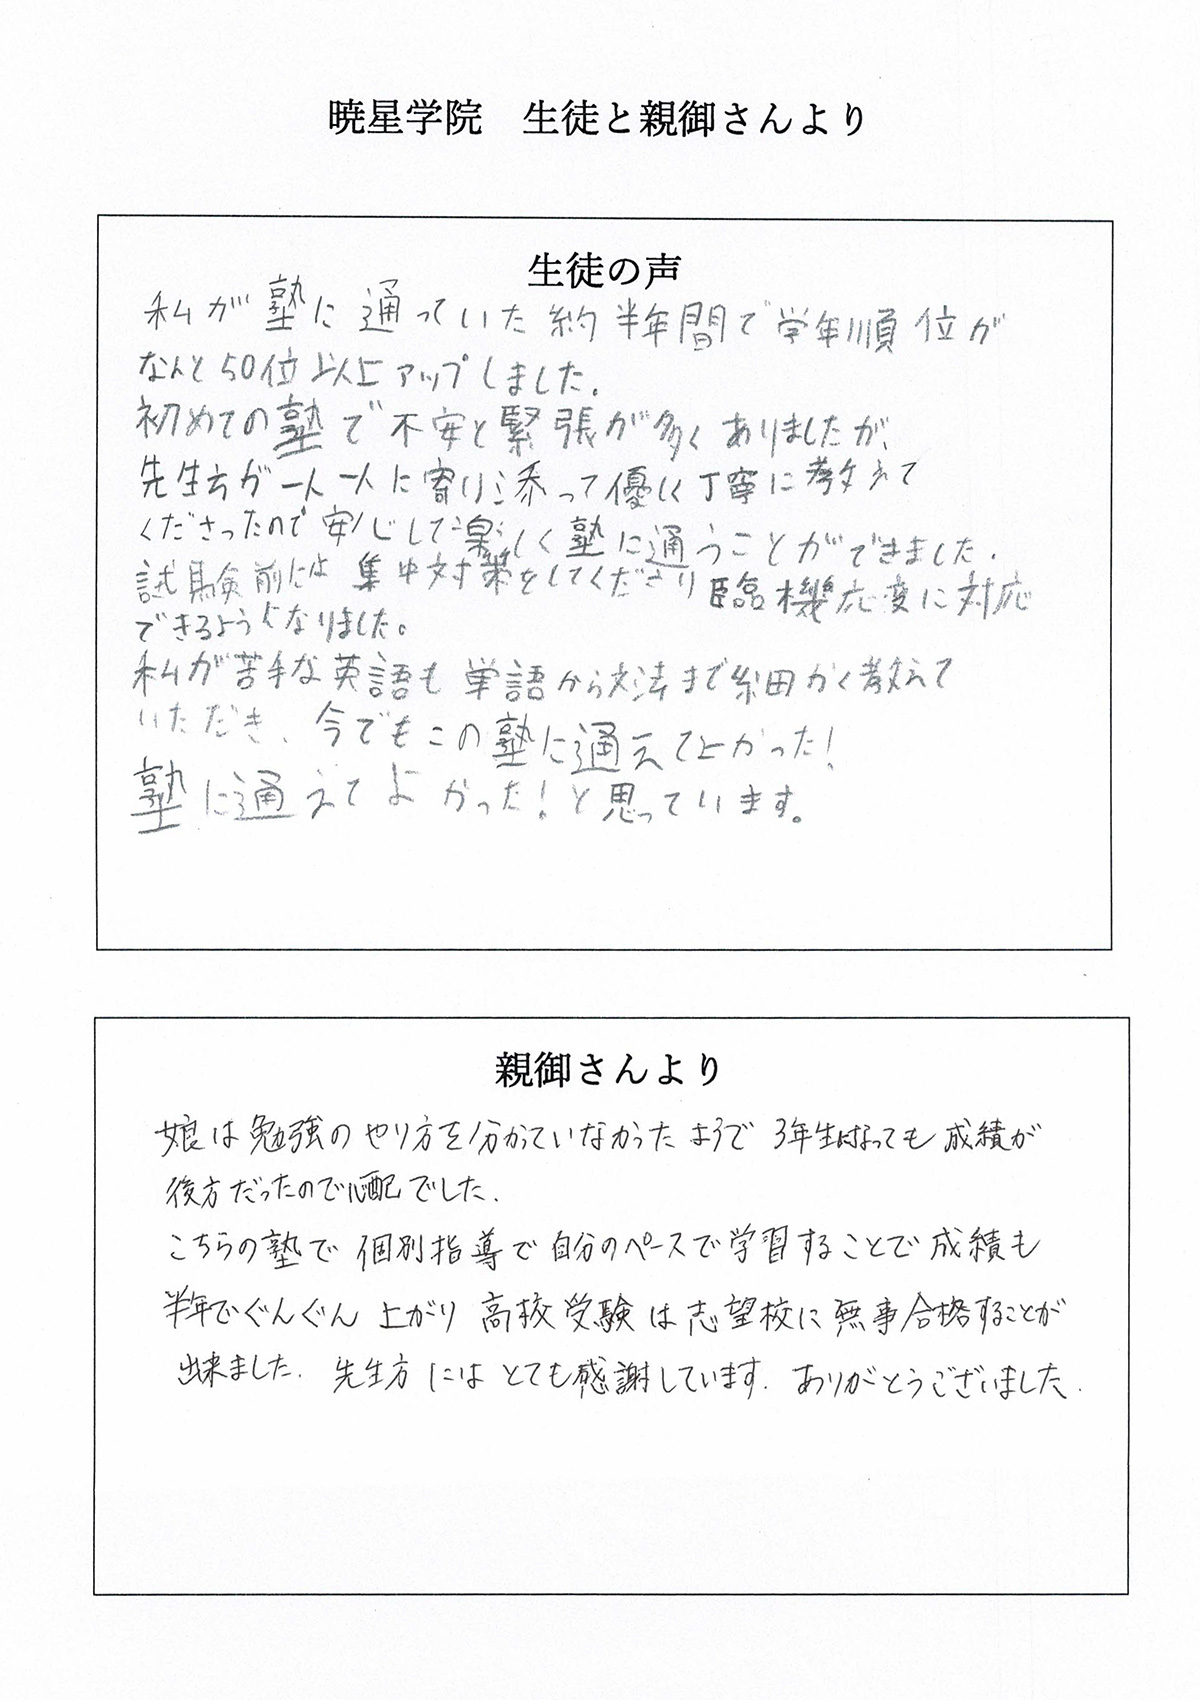 暁星学院　生徒と親御さんより
生徒の声
私が塾に通っていた約半年間で学年順位が
なんと50位以上アップしました.
初めての塾で不安と緊張が多くありましたが、
先生方が一人一人に寄り添って優しく丁寧に教えて
くださったので安心して楽しく塾に通うことができました.
試験前には集中対策をしてくださり臨機応変に対応
できるようになりました。
私が苦手な英語も単語から文法まで細かく教えて
いただき、今でもこの塾に通えてよかった!
塾に通えてよかった!と思っています。
親御さんより
娘は勉強のやり方を分かっていなかったようで 3年生になっても成績が
後方だったので心配でした.
こちらの塾で個別指導で自分のペースで学習することで成績も
半年でぐんぐん上がり高校受験は志望校に無事合格することが
出来ました. 先生方にはとても感謝しています. ありがとうございました.